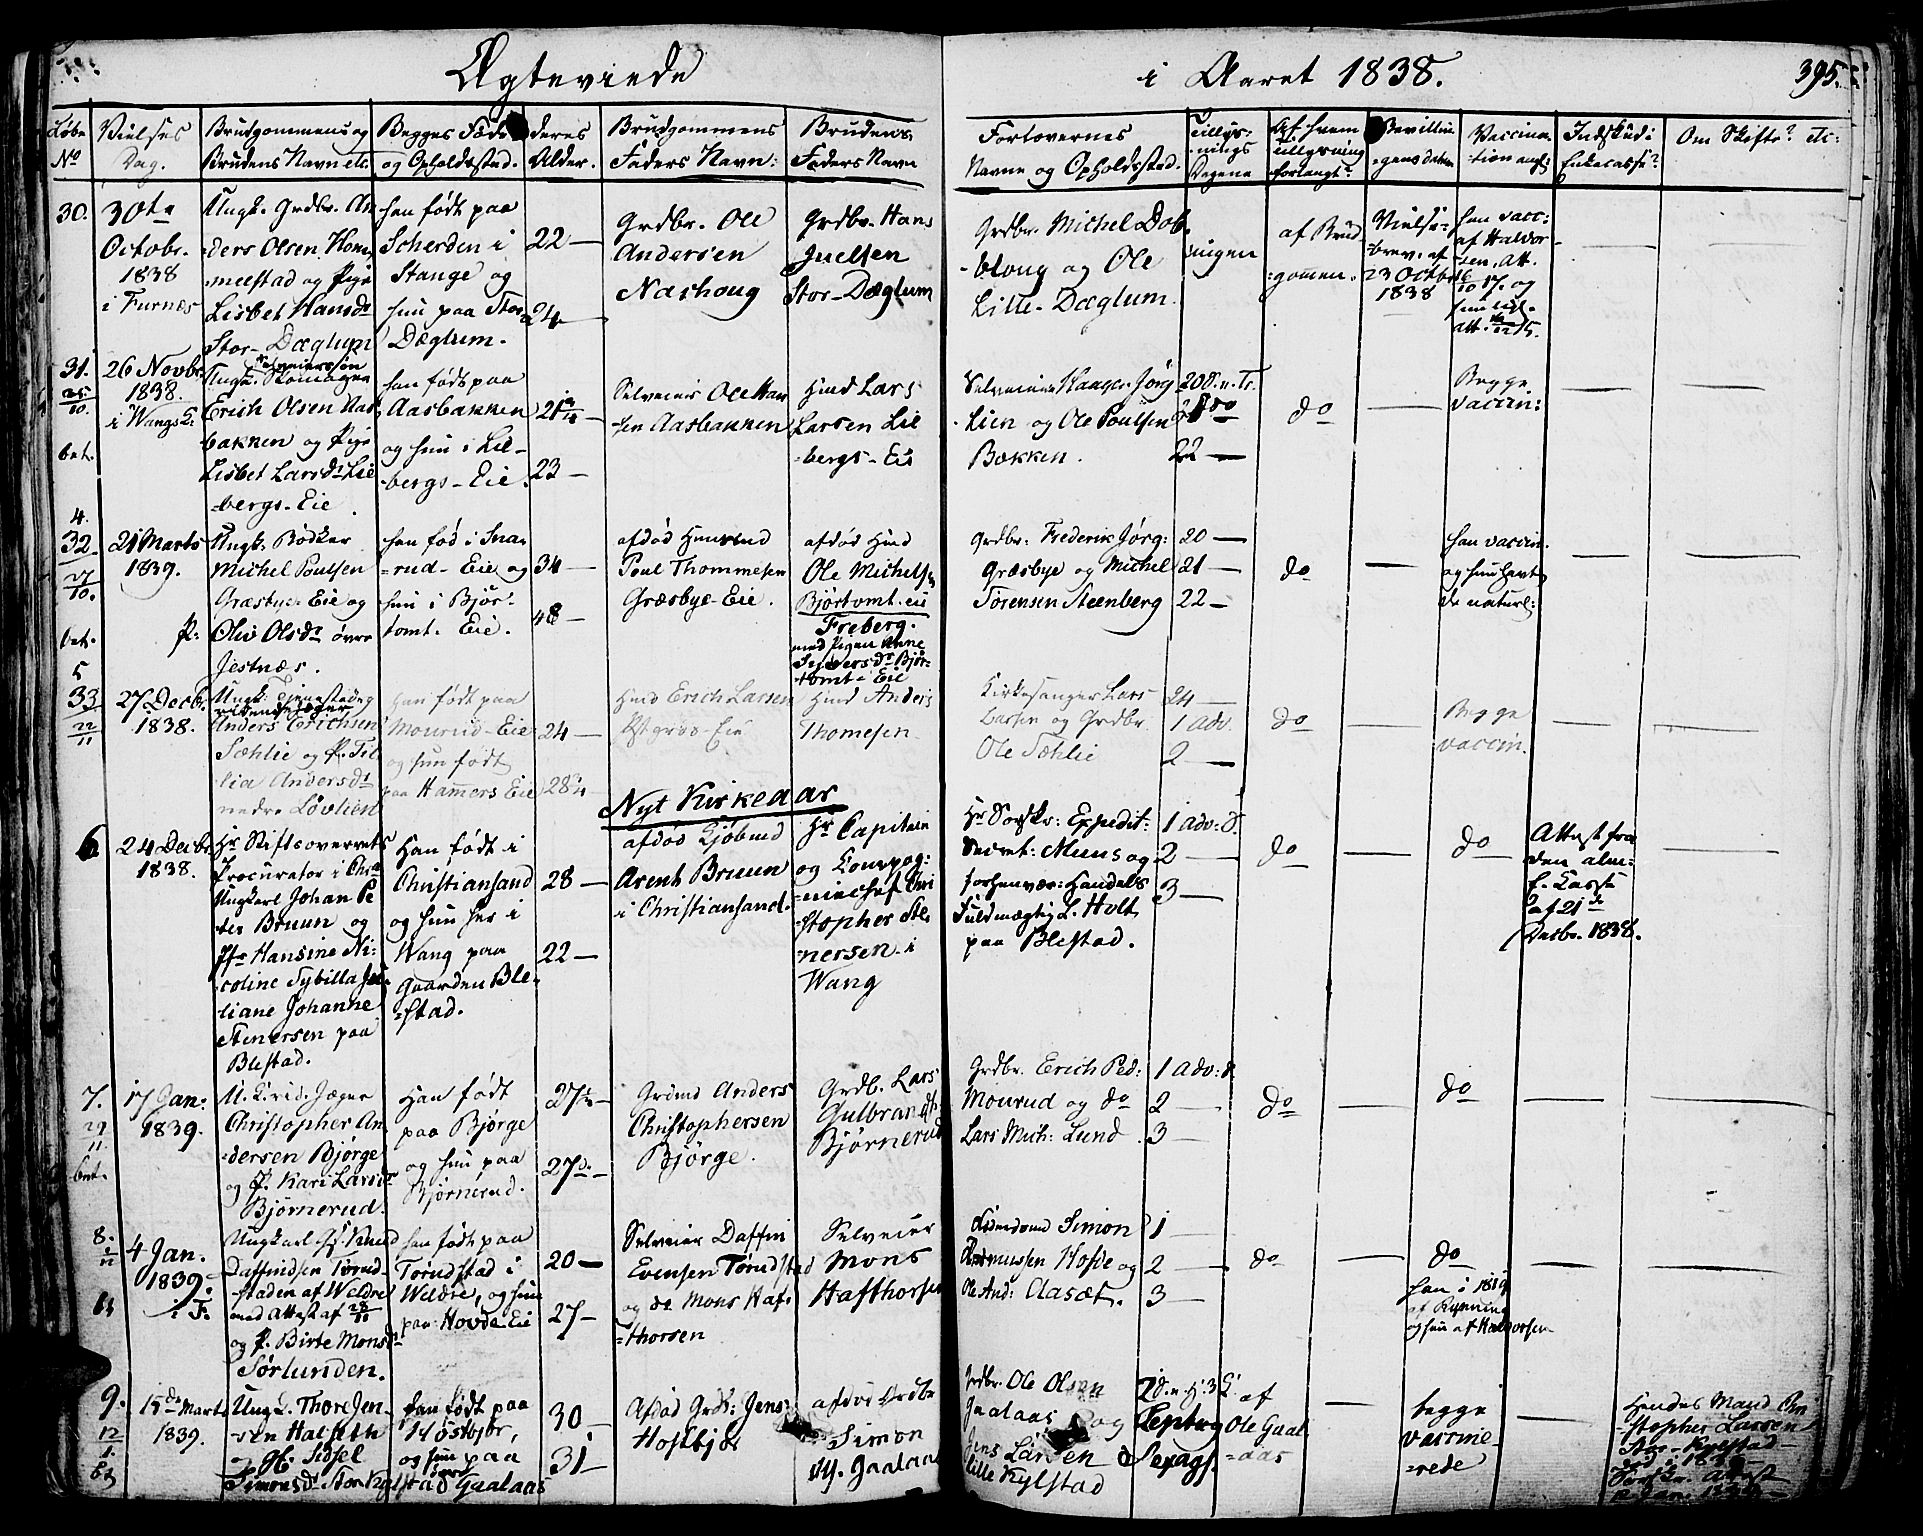 Ægteviede
i Aaret 1838.
395.
Løbe
No
Vielses
Dag.
Brudgommens og
Brudens Navn etc.
Begges Føde
og Opholdssted.
deres
Alder.
Brudgommens
Faders Navn:
Brudens
Faders Navn
Forlovernes
Navne og Opholdssted.
Tillys-
nings
Dagene
Af hvem
Tillysning
forlangt.
Bevillin-
gens datum
Vaccina-
tion angl:
Indskud i
Enkecasse?
Om Skifte? etc:
30.
30te
Octobr.
1838
i Furnæs
Ungk. Grdbr. An-
ders Olsen Hom-
melstad og Pige
Lisbet Hansdr
Stor-Dæglum
han født paa
Scherden i
Stange og
hun paa Stor-
Dæglum.
22
24
Grdbr. Ole
Andersen
Nashoug
Grdbr. Hans
Juelsen
Stor-Dæglum
Grdbr. Michel Dob-
bloug og Ole
Lille-Dæglum.
ingen
af Brud-
gomen.
Vielse-
brev. af
23 Octbr
1838
han vacc:
af Haldor-
sen, att.
og
hun ligl.
31.
25
10.
bet.
26 Novbr.
1838.
i Wangs K:
Selveiersøn
Ungk. Skomager
Erich Olsen Aas-
bakken og Pige
Lisbet Larsdr Lie-
bergs-Eie.
han født paa
Aasbakken
og hun i Lie-
bergs-Eie.
21
23
Selveier Ole Han-
sen Aasbakken
Husmd Lars
Larsen Lie-
bergs-Eie
Selveier Haagen Jørg
Lien og Ole Poulsen
Bakken.
20 S. n. Tr.
22
do
Begge
vaccin:
4.
32
27
10.
bet.
5
21 Marts
1839.
Ungk. Bødker
Michel Poulsen
Græsbye-Eie og
P: Oliv Olsdr øvre
Jestnæs.
han fød i Sna-
rud-Eie og
hun i Bjør-
tomt. Eie.
34
48
afdød Husmd
Poul Thommesen
Græsbye-Eie.
afdød Husmd
Ole Michelsen
Bjørtomt. eie
Freberg.
med Pigen Anne
Siversdr Bjør-
tomt-Eie
Grdbr. Frederik Jørg:
Græsbye og Michel
Sørensen Steenberg
20
21
22
do
han vaccin.
og hun havt
de naturl:
33
22
11
27 Decb.
1838.
Ungk:
Anders Erichsen
Sæhlie og P. Sil-
lia Andersdr
nedre Løvlien
han født paa
Mourud-Eie
og hun født
paa Hamers Eie
24
28
Husmd Erich Larsen
Husmd Anders
Thomesen
Kirkesanger Lars
Larsen og Grdbr
Ole Sæhlie
24
1 adv.
2
do
Begge
vaccin.
Nyt Kirkeaar
6
24 Decbr.
1838.
Hr Stiftsoverrets
Procurator i Chra
Ungkarl Johan Pe-
ter Bruun og
Jfr Hansine Ni-
coline Sybilla Ju-
liane Johanne
Stenersen paa
Blestad.
Han født i
Christiansand
og hun her i
Wang paa
Gaarden Ble-
stad.
28
22
afdød Kjøbmd
Arent Bruun
i Christiansand.
Hr Capitain
og Compag:
niechef Chri-
stopher Ste-
nersen i
Wang
Hr Sorskr: Expedit:
Secret: Muus og
forhenvær: Handels
Fuldmægtig L. Holt
paa Blestad.
1 adv: S.
2
3
do
do
Attest fra
den alm:
E. Casse
af 21de
Decbr. 1838.
7.
27
11.
bet.
17 Jan:
1839.
U. K. rid. Jæger
Christopher An-
dersen Bjørge
og P. Kari Larsdr
Bjørnerud.
Han født
paa Bjørge
og hun paa
Bjørnerud.
27
27
Grdmd Anders
Christophersen
Bjørge.
Grdb. Lars
Gulbrands:
Bjørnerud
Grdbr. Erich Ped:
Mourud og do
Lars Mich: Lund.
1 adv: S.
2
3
do
do
8.
4 Jan.
1839.
i F.
Ungkarl Gs. Knud
Daffindsen Tørud-
staden af Weldre
med Attest af 28/11
og P. Birte Monsdr
Sørlunden.
han født paa
Tørudstad i
Weldre, og hun
paa Hovde Eie
20
27
Selveier Daffin
Evensen Tørudstad
og do Mons Haf-
thorsen
Selveier
Mons
Hafthorsen
Simon
Rasmussen Hofde og
Ole And: Aasæt.
1
2
3
do
do
han i 1819
af Rynning
og hun af Haldorsen
9.
12
1.
15de Marts
1839.
Ungk. Thore Jen-
sen Halseth
og Sidsel
Simonsdr Stor Kylstad
han født paa
Høstbjør,
og hun paa
Gaalaas
30
31
Afdød Grdb: Jens
Hostbjør
afdød Grdbr
Simon
M. Gaalaas
Grdbr. Ole Olsen
Gaalaas og
Jens Larsen
lille Kylstad
2 S. n. H. 3 K.
Septuag
Sexags.
af
Ole Gaal-
aas
begge
vaccine-
rede
Hendes Mand Chri-
stopher Larsen
Kylstad